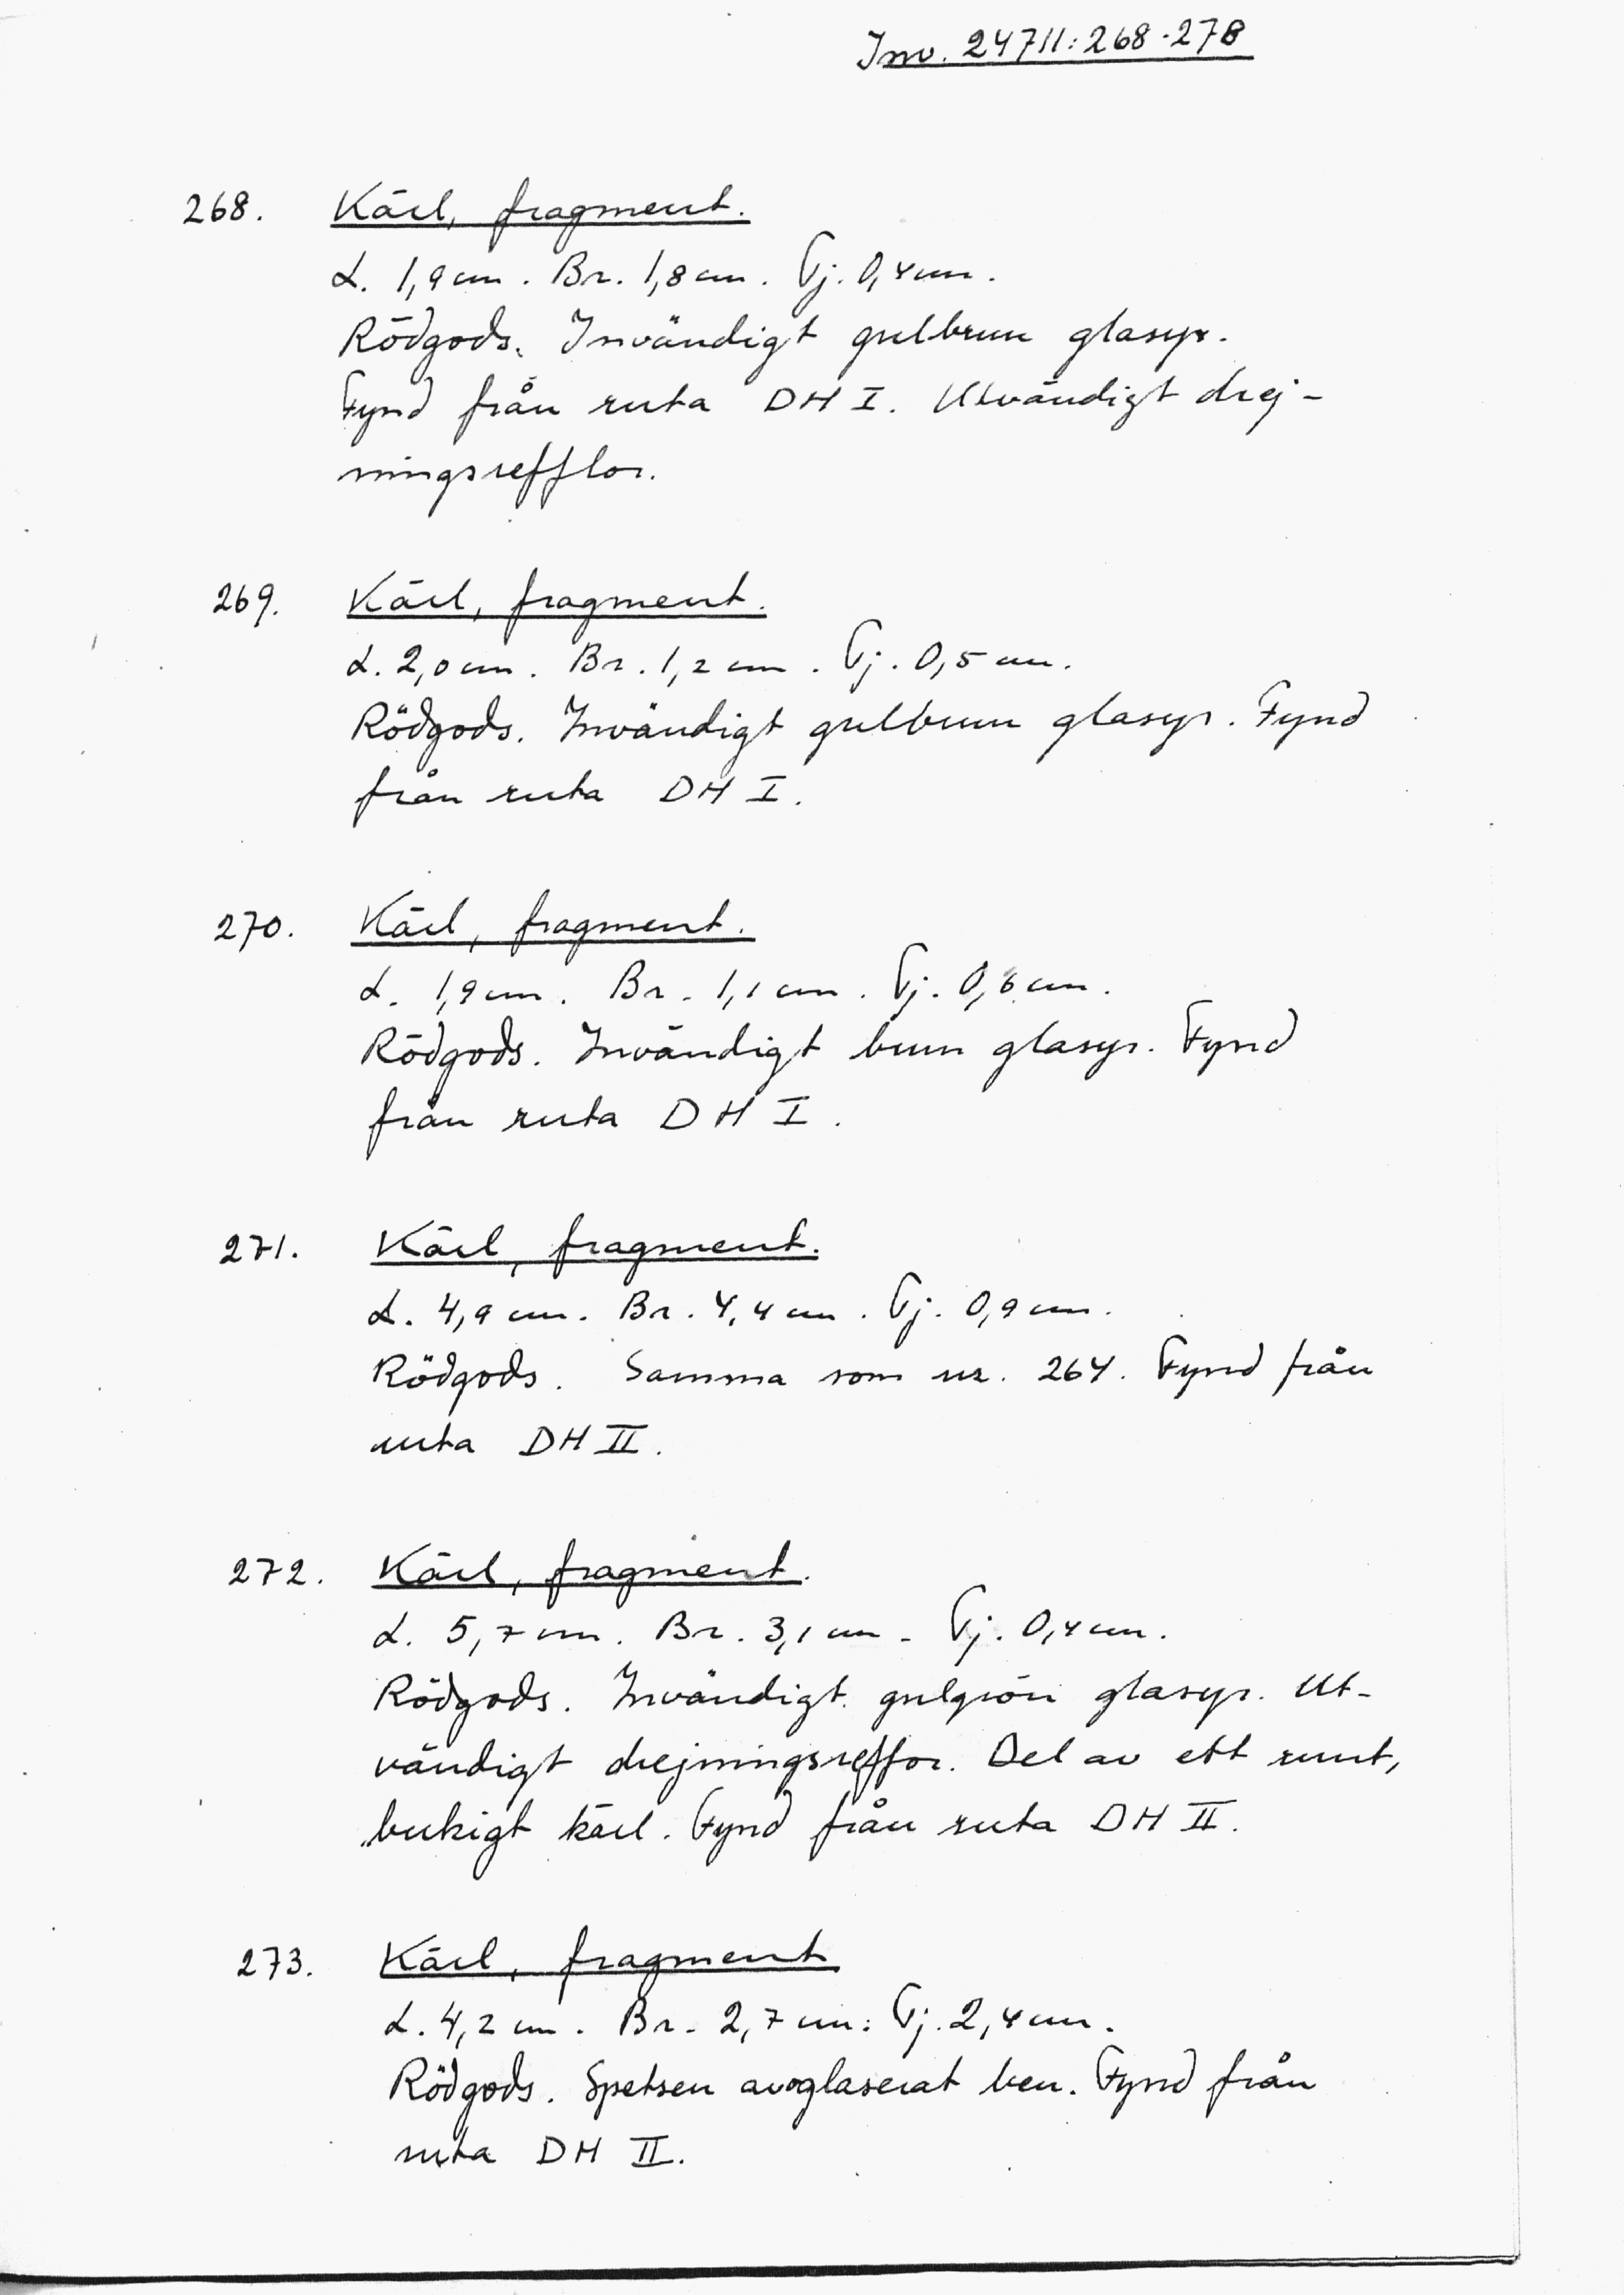 Inv. 24711:268-278
268. Kärl, fragment.
L. 1,9 cm. Br. 1,8 cm. Tj. 0,4 cm.
Rödgods. Invändigt gulbrun glasyr.
Fynd från ruta DH I. Utvändigt drej-
ningsrefflor.
269. Kärl, fragment.
L. 2,0 cm. Br. 1,2 cm. Tj. 0,5 cm.
Rödgods. Invändigt gulbrun glasyr. Fynd
från ruta DH I.
270. Kärl, fragment.
L. 1,9 cm. Br. 1,1 cm. Tj. 0,6 cm.
Rödgods. Invändigt brun glasyr. Fynd
från ruta DH I.
271. Kärl, fragment.
L. 4,9 cm. Br. 4,4 cm. Tj. 0,9 cm.
Rödgods. Samma som nr. 264. Fynd från
ruta DH II.
272. Kärl, fragment.
L. 5,7 cm. Br. 3,1 cm. Tj. 0,4 cm.
Rödgods. Invändigt gulgrön glasyr. Ut-
vändigt drejningsreffor. Del av ett runt,
bukigt kärl. Fynd från ruta DH II.
273. Kärl, fragment
L. 4,2 cm. Br. 2,7 cm. Tj. 2,4 cm.
Rödgods. Spetsen av oglaserat ben. Fynd från
ruta DH II.